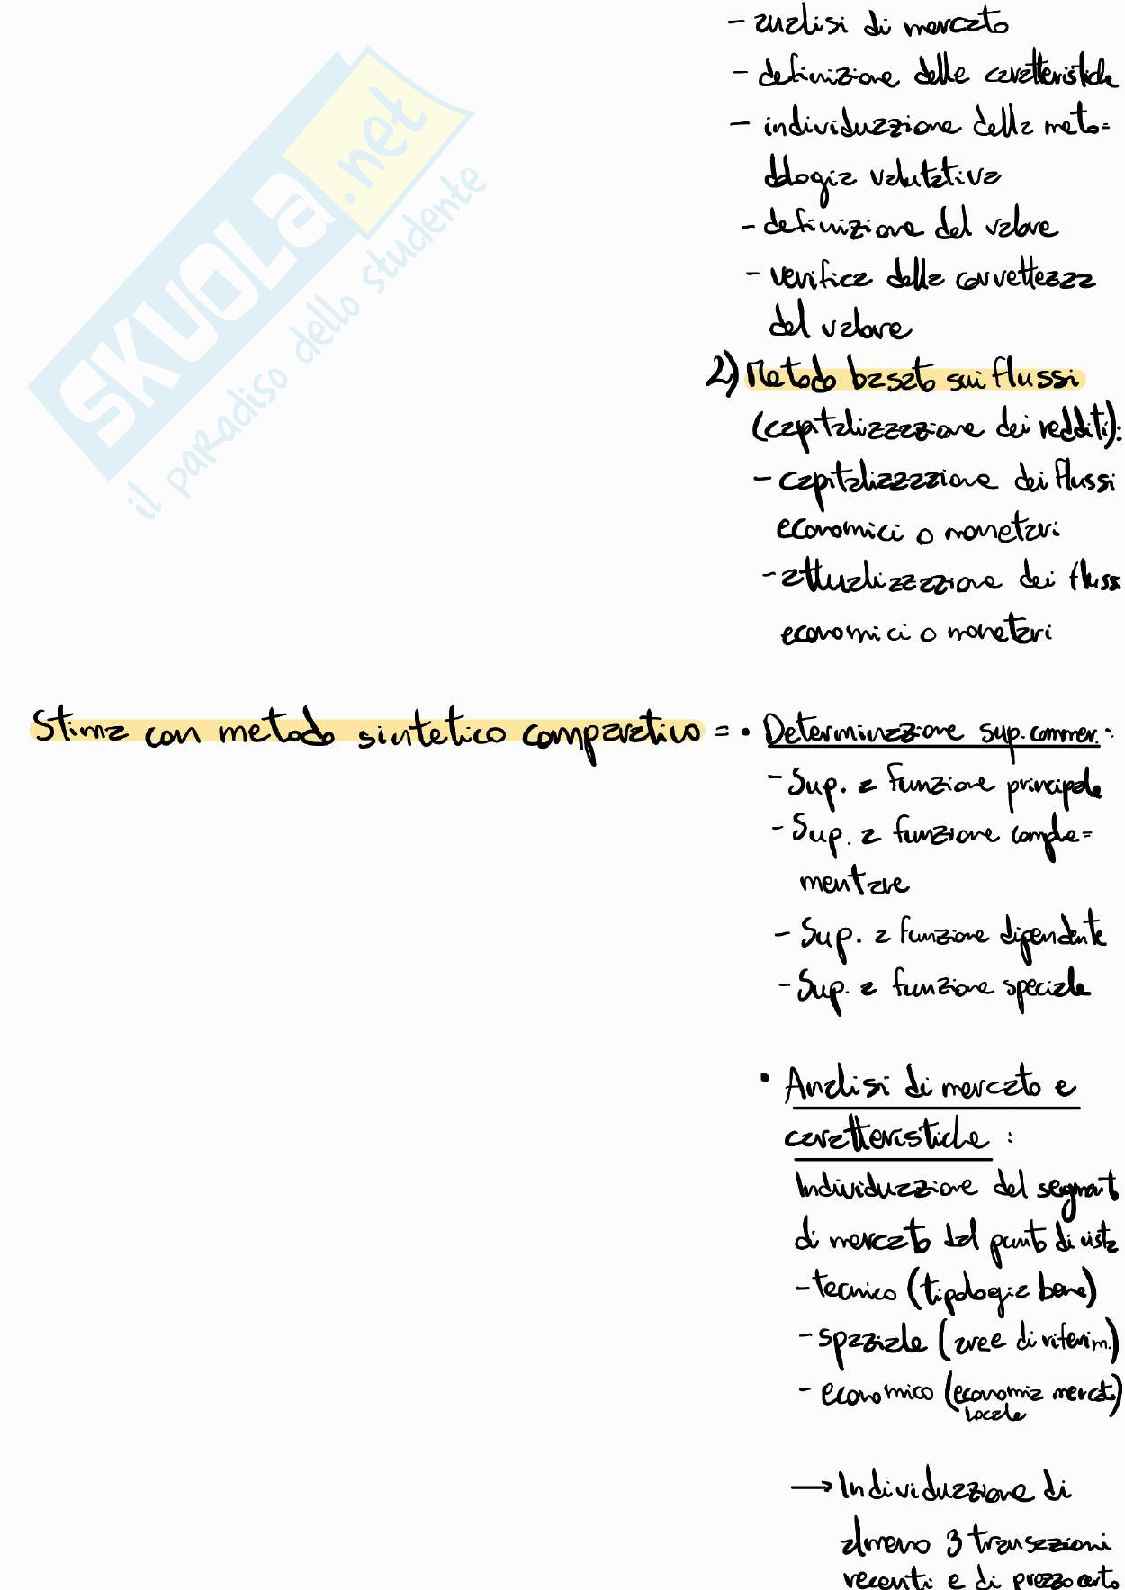 SKUOLA.net
il paradiso dello studente
- analisi di mercato
- definizione delle caratteristiche
- individuazione della meto=
dologia valutativa
- definizione del valore
- verifica della correttezza
del valore
2) Metodo basato sui flussi
(capitalizzazione dei redditi):
- capitalizzazione dei flussi
economici o monetari
- attualizzazione dei flussi
economici o monetari
Stima con metodo sintetico comparativo = • Determinazione sup. commer.:
- Sup. a funzione principale
- Sup. a funzione comple=
mentare
- Sup. a funzione dipendente
- Sup. a funzione speciale
• Analisi di mercato e
caratteristiche :
Individuazione del segmento
di mercato dal punto di vista
- tecnico (tipologia bene)
- spaziale (aree di riferim.)
- economico (economia mercato)
locale
→ Individuazione di
almeno 3 transazioni
recenti e di prezzo certo